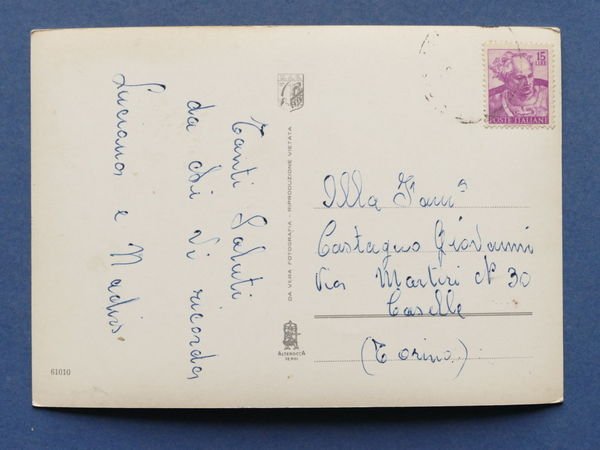 Tanti Saluti
da chi Vi ricorda
Luciana e
DA VERA FOTOGRAFIA - RIPRODUZIONE VIETATA
ALTEROCCA
TERNI
61010
15
LIRE
POSTE ITALIANE
Alla Fam^a
Castagno Giovanni
Via Martiri N° 30
Caselle
(Torino)